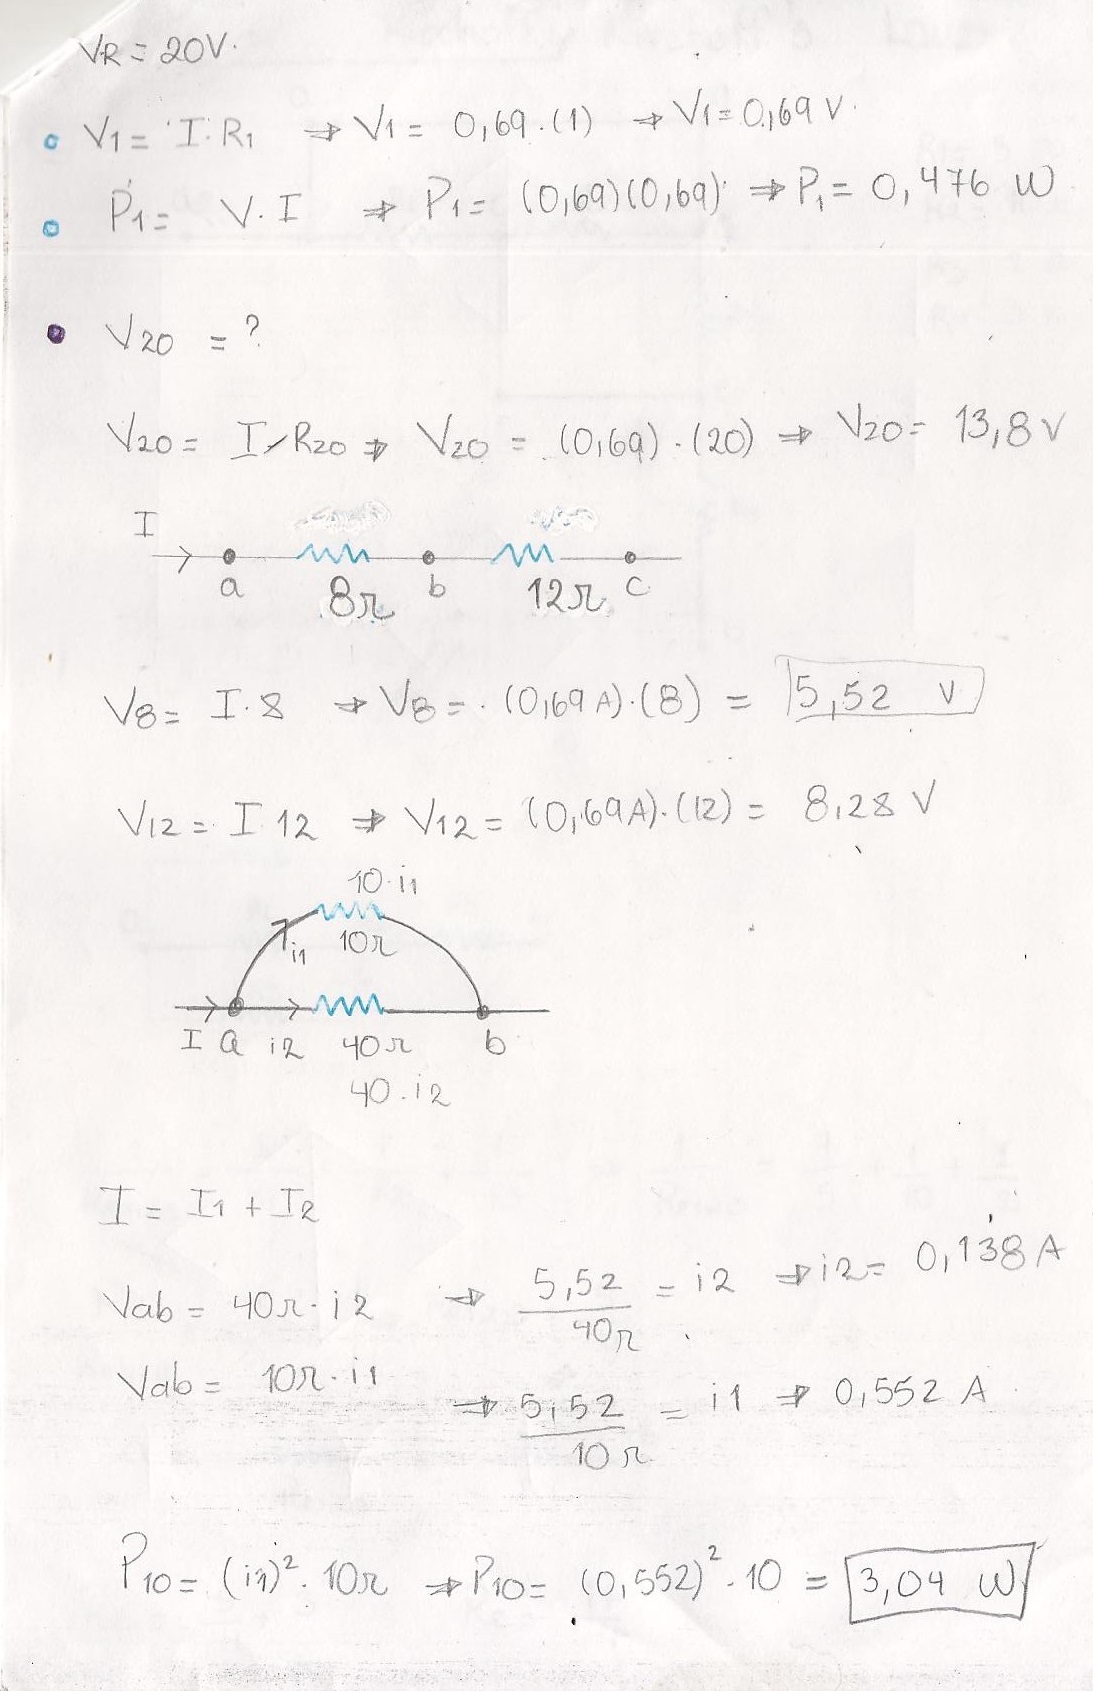 VR = 20V.
V1 = I. R1 ⇒ V1 = 0,69.(1) ⇒ V1 = 0,69 V.
P1 = V. I ⇒ P1 = (0,69)(0,69) ⇒ P1 = 0,476 W
V20 = ?
V20 = I R20 ⇒ V20 = (0,69).(20) ⇒ V20 = 13,8 V
I
a 8Ω b 12Ω c
V8 = I.8 ⇒ V8 = (0,69A).(8) = 5,52 V
V12 = I 12 ⇒ V12 = (0,69A).(12) = 8,28 V
10.i1
i1 10Ω
I a i2 40Ω b
40.i2
I = I1 + I2
Vab = 40Ω.i2 ⇒ 5,52/40Ω = i2 ⇒ i2 = 0,138 A
Vab = 10Ω.i1 ⇒ 5,52/10Ω = i1 ⇒ 0,552 A
P10 = (i1)².10Ω ⇒ P10 = (0,552)².10 = 3,04 W